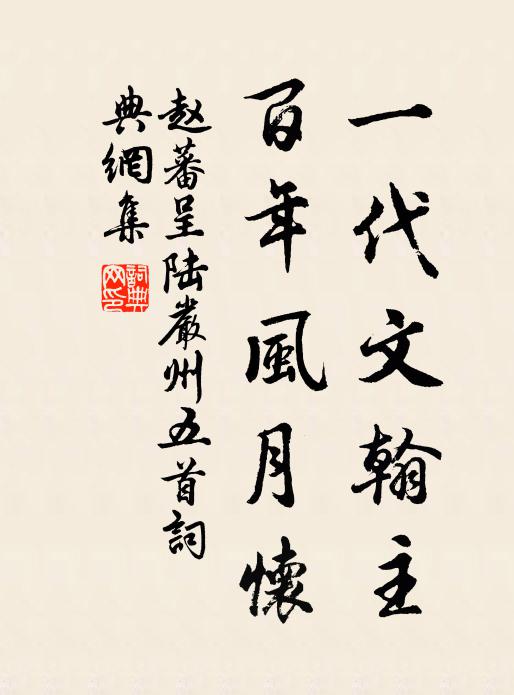 一代文翰主
百年風月懷
赵蕃呈陆嚴州五首詞
典網集
詞典网印